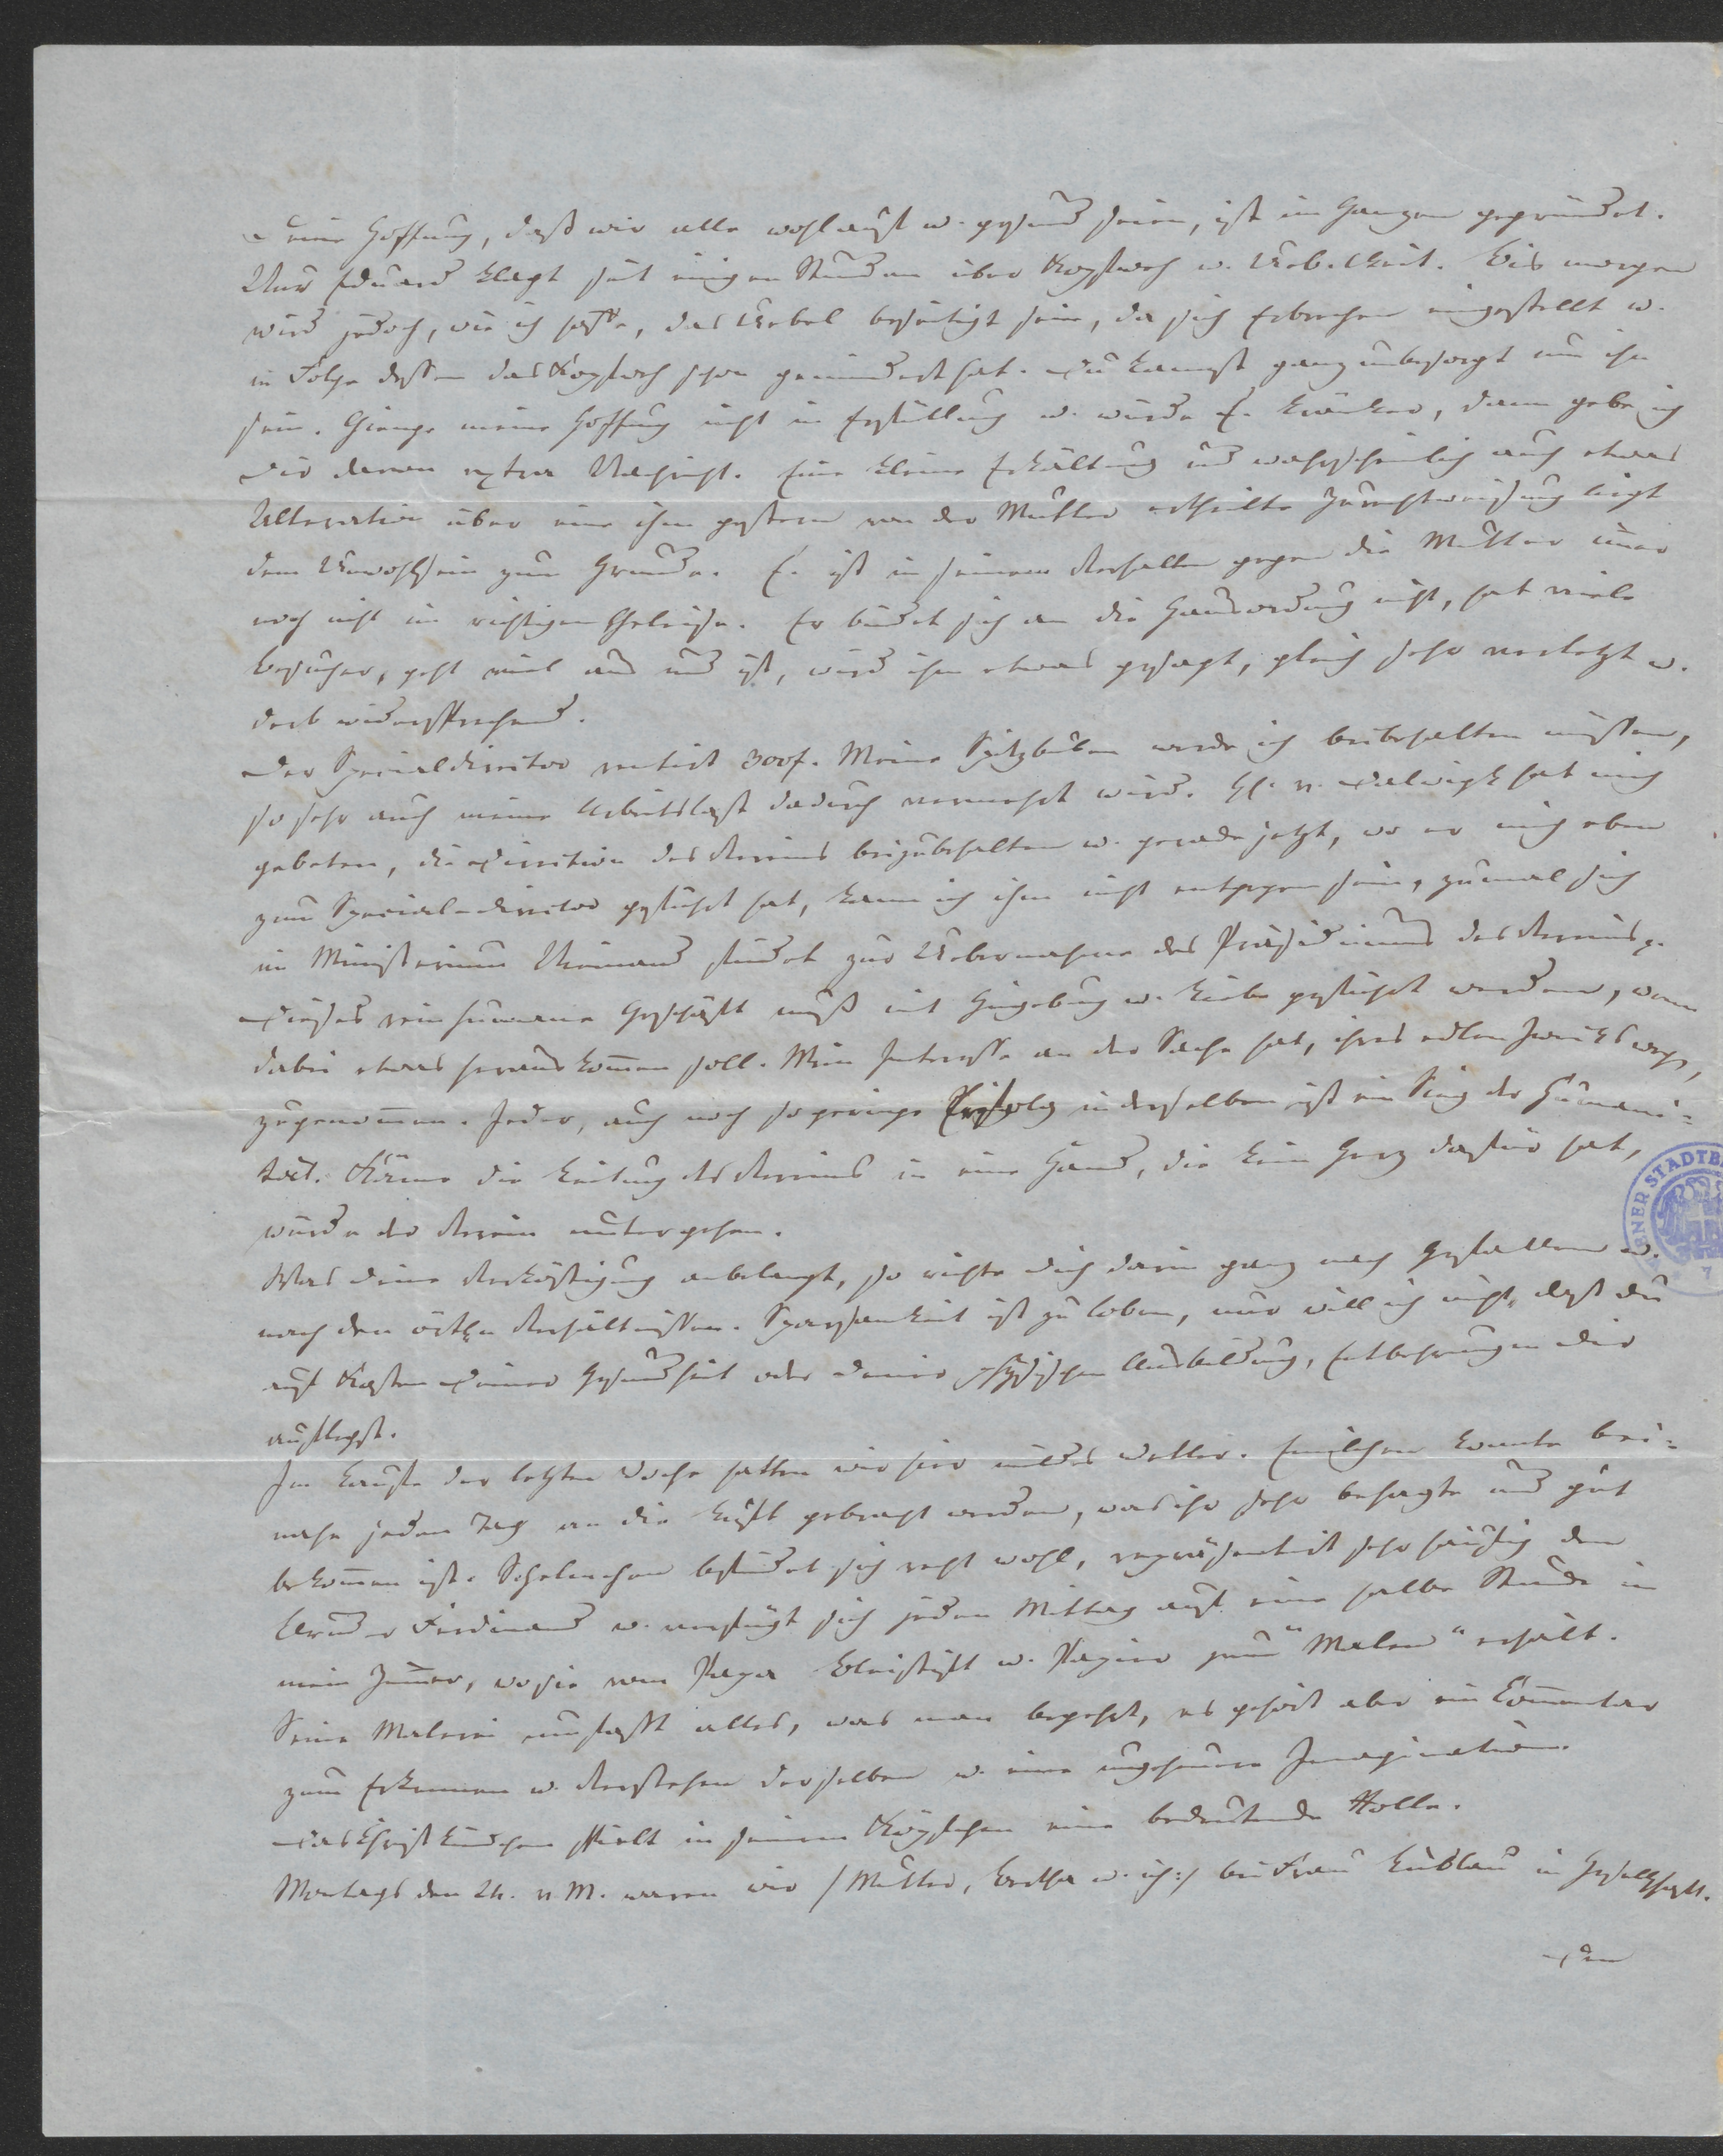 Deine Hoffnung, daß wir alle wohlauf u. gesund seien, ist im Ganzen gegründet.
Nur Eduard klagt seit einigen Stunden über Kopfweh u. Uebelkeit. Bis morgen
wird jedoch, wie ich hoffe, das Uebel beseitigt sein, da sich Erbrechen eingestellt u.
in Folge dessen das Kopfweh schon gemindert hat. Du kannst ganz unbesorgt um ihn
sein. Gienge meine Hoffnung nicht in Erfüllung u. würde E. kränker, dann gebe ich
Dir davon extra Nachricht. Eine kleine Erkältung und wahrscheinlich auch etwas
Alteration über eine ihm gestern von der Mutter ertheilte Zurechtweisung liegt
dem Unwohlsein zum Grunde. E. ist in seinem Verhalten gegen die Mutter im̅er
noch nicht im richtigen Geleise. Er bindet sich an die Hausordnung nicht, hat viele
Besucher, geht viel aus und ist, wird ihm etwas gesagt, gleich sehr verletzt u.
derb widersprechend.
Der Specialdirector rentirt 300f. Meine Spitzbuben werde ich beibehalten müssen,
so sehr auch meine Arbeitslast dadurch vermehrt wird. H. v. Dalwigk hat mich
gebeten, die Direction des Vereins beizubehalten u. gerade jetzt, wo er mich eben
zum Special-director gemacht hat, kann ich ihm nicht entgegen sein, zumal sich
im Ministerium Niemand findet zur Uebernahme des Präsidiums des Vereins.
Dieses rein humane Geschäft muß mit Hingebung u. Liebe geführt werden, wenn
dabei etwas herauskom̅en soll. Mein Interesse an der Sache hat, ihres edlen Zwecks wegen,
zugenom̅en. Jeder, auch noch so geringe Erfolg in derselben ist ein Sieg der Humani-
tät. Käme die Leitung des Vereins in eine Hand, die kein Herz dafür hat,
würde der Verein untergehen.
Was Deine Verköstigung anbelangt, so richte Dich darin ganz nach Gefallen u.
nach den örtln Verhältnissen. Sparsamkeit ist zu loben, nur will ich nicht, daß du
auf Kosten Deiner Gesundheit oder Deiner physischen Ausbildung, Entbehrungen Dir
auflegst.
Im Laufe der letzten Woche hatten wir hier mildes Wetter. Emilchen konnte bei-
nahe jeden Tag an die Luft gebracht werden, was ihr sehr behagte und gut
bekom̅en ist. befindet sich recht wohl, repräsentirt sehr häufig den
Bruder Ferdinand u. verfügt sich jeden Mittag auf eine halbe Stunde in
mein Zim̅er, wo sie vom Papa Bleistift u. Papier zum "Malen" erhält.
Seine Malerei umfaßt alles, was man begehrt, es gehört aber ein Com̅entar
zum Erkennen u. Verstehen derselben u. eine ungeheure Imagination.
Das Christkindchen spielt in seinem Köpfchen eine bedeutende Rolle.
Montags den 24. v. M. waren wir /:Mutter, Bertha u. ich:/ bei Frau in Gesellschaft.
Den